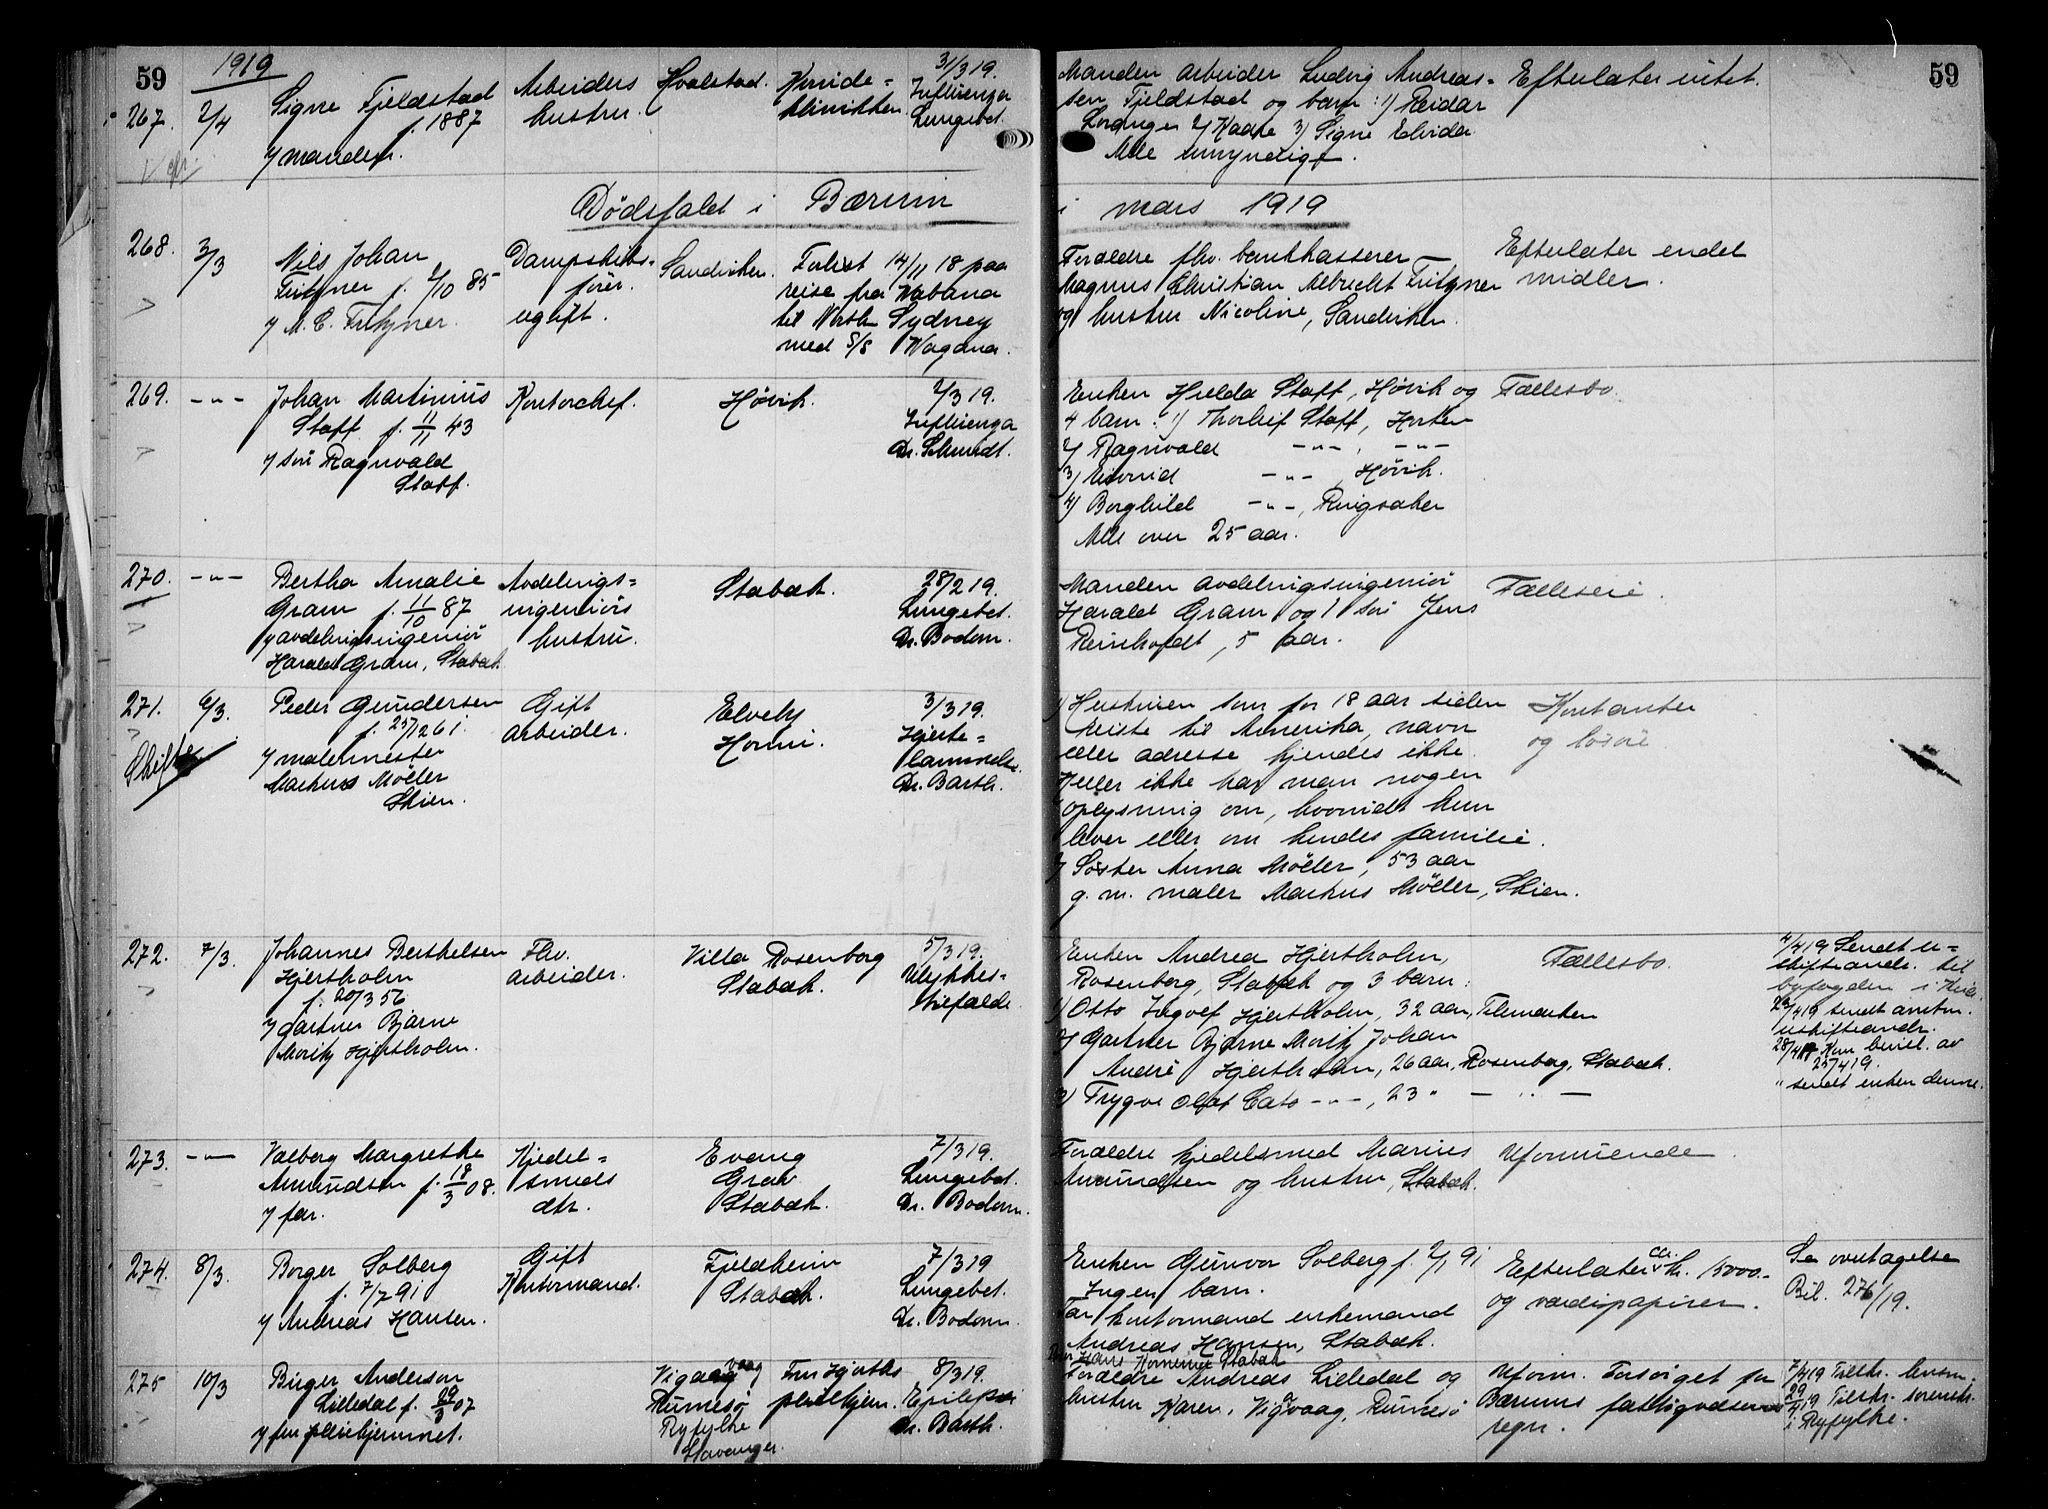 59
1919
59
267. 2/4
Signe Fjeldstad
f. 1887
v/ manden.
Arbeiders
hustru.
Hvalstad.
Kvinde=
klinikken
31/3 19.
Influenza
Lungebet.
Manden arbeider Ludvig Andreas=
sen Fjeldstad og barn: 1) Reidar
2) Kaare 3) Signe
Alle umyndige.
Efterlater intet.
Dødsfald i Bærum
i mars 1919
268. 3/3
Nils Johan
Fritzner f. 2/10 85
v/ M. C. Fritzner.
Dampskibs=
fører.
ugift.
Sandviken.
Forlist 14/11 18 paa
reise fra Wabana
til North Sydney
med S/S Wagama.
Forældre fhv. bankkasserer
Magnus Christian Albrecht Fritzner
og hustru Nicoline, Sandviken.
Efterlater endel
midler.
269. -"-
Johan Martinius
Staff f. 11/11 43
v/ søn Ragnvald
Staff.
Kontorchef.
Høvik.
2/3 19.
Influenza
Dr. Schmidt.
Enken Hulda Staff, Høvik og
4 barn: 1) Thorleif Staff, Horten
2) Ragnvald -"-, -"-
3) -"-, Høvik.
4) Borghild -"-, Ringsaker
Alle over 25 aar.
Fællesbo.
270. -"-
Bertha Amalie
Gram f. 11/10 87
v/ avdelingsingeniør
Harald Gram, Stabæk
Avdelings=
ingeniørs
hustru.
Stabæk.
28/2 19.
Lungebet.
Dr. Bodom.
Manden avdelingsingeniør
Harald Gram og 1 søn Jens
Reinholdt, 5 aar.
Fælleseie.
271. 6/3.
Skifte
Peder Gundersen
f. 25/12 61.
v/ malermester
Markus Möller
Skien.
Gift
arbeider.
Elvely
Hosni.
3/3 19.
Hjerte=
lammelse.
Dr. Barth.
1) Hustruen som for 18 aar siden
reiste til Amerika, navn
eller adresse kjendes ikke.
Heller ikke har man nogen
oplysning om, hvorvidt hun
lever eller om hendes familie.
2) Søster Anna Möller, 53 aar
g. m. maler Markus Möller, Skien.
Kontanter
og løsøre
272. 7/3.
Johannes Berthelsen
Hjertholm
f. 20/3 56
v/ gartner Bjarne
Moritz Hjertholm.
Fhv.
arbeider.
Villa Rosenborg
Stabæk.
5/3 19.
Ulykkes=
tilfælde
Enken Andrea Hjertholm,
Rosenborg, Stabæk og 3 barn:
1) Otto Ingolf Hjertholm, 32 aar, Telemarken
2) Gartner Bjarne Moritz Johan
André Hjertholm, 26 aar, Rosenborg, Stabæk.
3) Trygve Olaf Cato -"-, 23 " - " -
Fællesbo.
4/4 19 Sendt u=
skifteandr. til
byfogden i
23/4 19 sendt
uskifteandr.
28/4 19 Kom bevil. av
25/4 19.
" sendt enken denne.
273. -"-
Valborg Margrethe
Amundsen f. 18/3 08.
v/ far.
Kjedel=
smeds
dtr.
Evang
Grav
Stabæk.
7/3 19.
Lungebet.
Dr. Bodom.
Forældre kjedelsmed Marius
Amundsen og hustru, Stabæk.
Uformuende.
274. 8/3.
Borger Solberg
f. 7/7 91
v/ Andreas Hansen.
Gift
Kontormand.
Fjeldheim
Stabæk.
7/3 19
Lungebet.
Dr. Bodom.
Enken Gunvor Solberg f. 2/1 91
Ingen barn.
Far kontormand enkemand
Andreas Hansen, Stabæk.
Efterlater ca. kr. 15000.-
og værdipapirer.
Se overtagelse
Bil. 276/19.
275 10/3
Birger Anderson
Lilledal f. 29/3 07
v/ fru pleiehjemmet.
Vigaavaag
Rennesø
Ryfylke
Stavanger.
Fru Hjorths
pleiehjem.
8/3 19.
Epilepsi
Dr. Barth.
Forældre Andreas Lilledal og
hustru Karen, Vigavaag, Rennesø
Uform. Forsørget for
Bærums fattigvæsens
regn.
7/4 19 Tilskr. lensm.
29/4 19 Tilskr. sorenskr.
i Ryfylke.